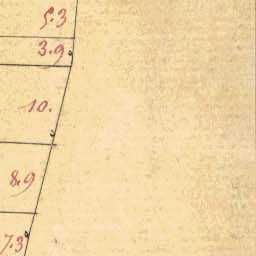 5.3
3.9
10.
8.9
7.3